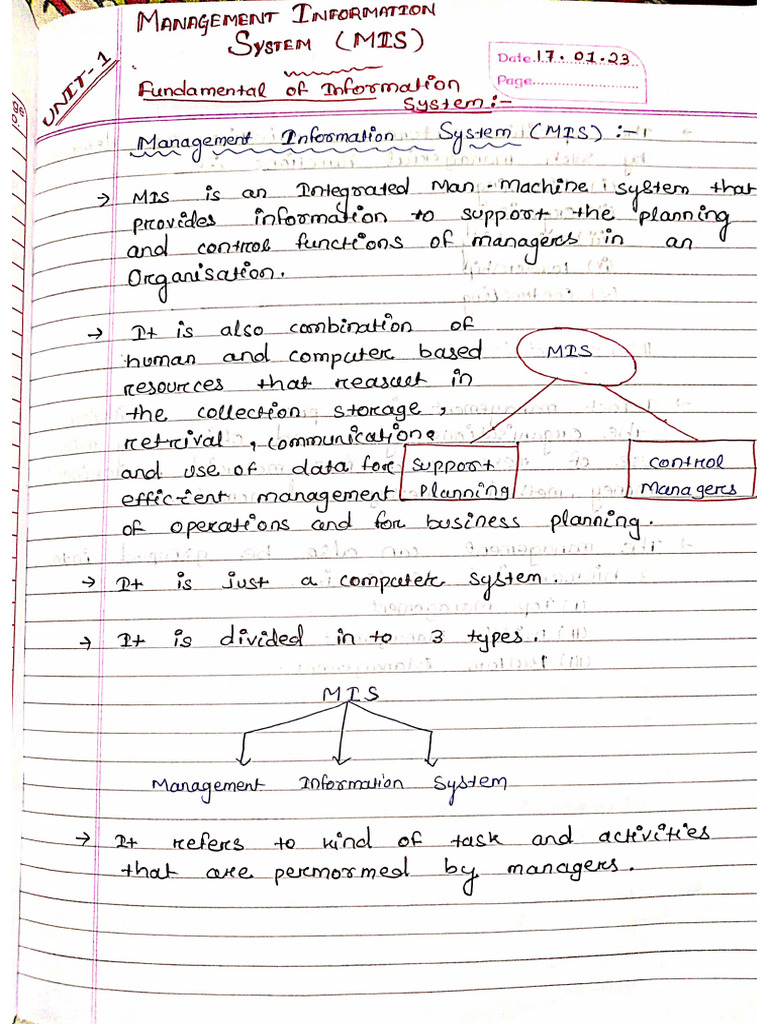 MANAGEMENT INFORMATION
SYSTEM (MIS)
UNIT-1
Date 17.01.23
Page
Fundamental of Information
System:-
Management Information System (MIS) :-
→ MIS is an Integrated Man-Machine system that
provides information to support the planning
and control functions of managers in an
Organisation.
→ It is also combination of
human and computer based
resources that reasult in
the collection storage,
retrival, communication
and use of data for
efficient management
of operations and for business planning.
MIS
Support
Planning
control
Managers
→ It is just a computer system.
→ It is divided in to 3 types.
MIS
Management Information System
→ It refers to kind of task and activities
that are permormed by managers.